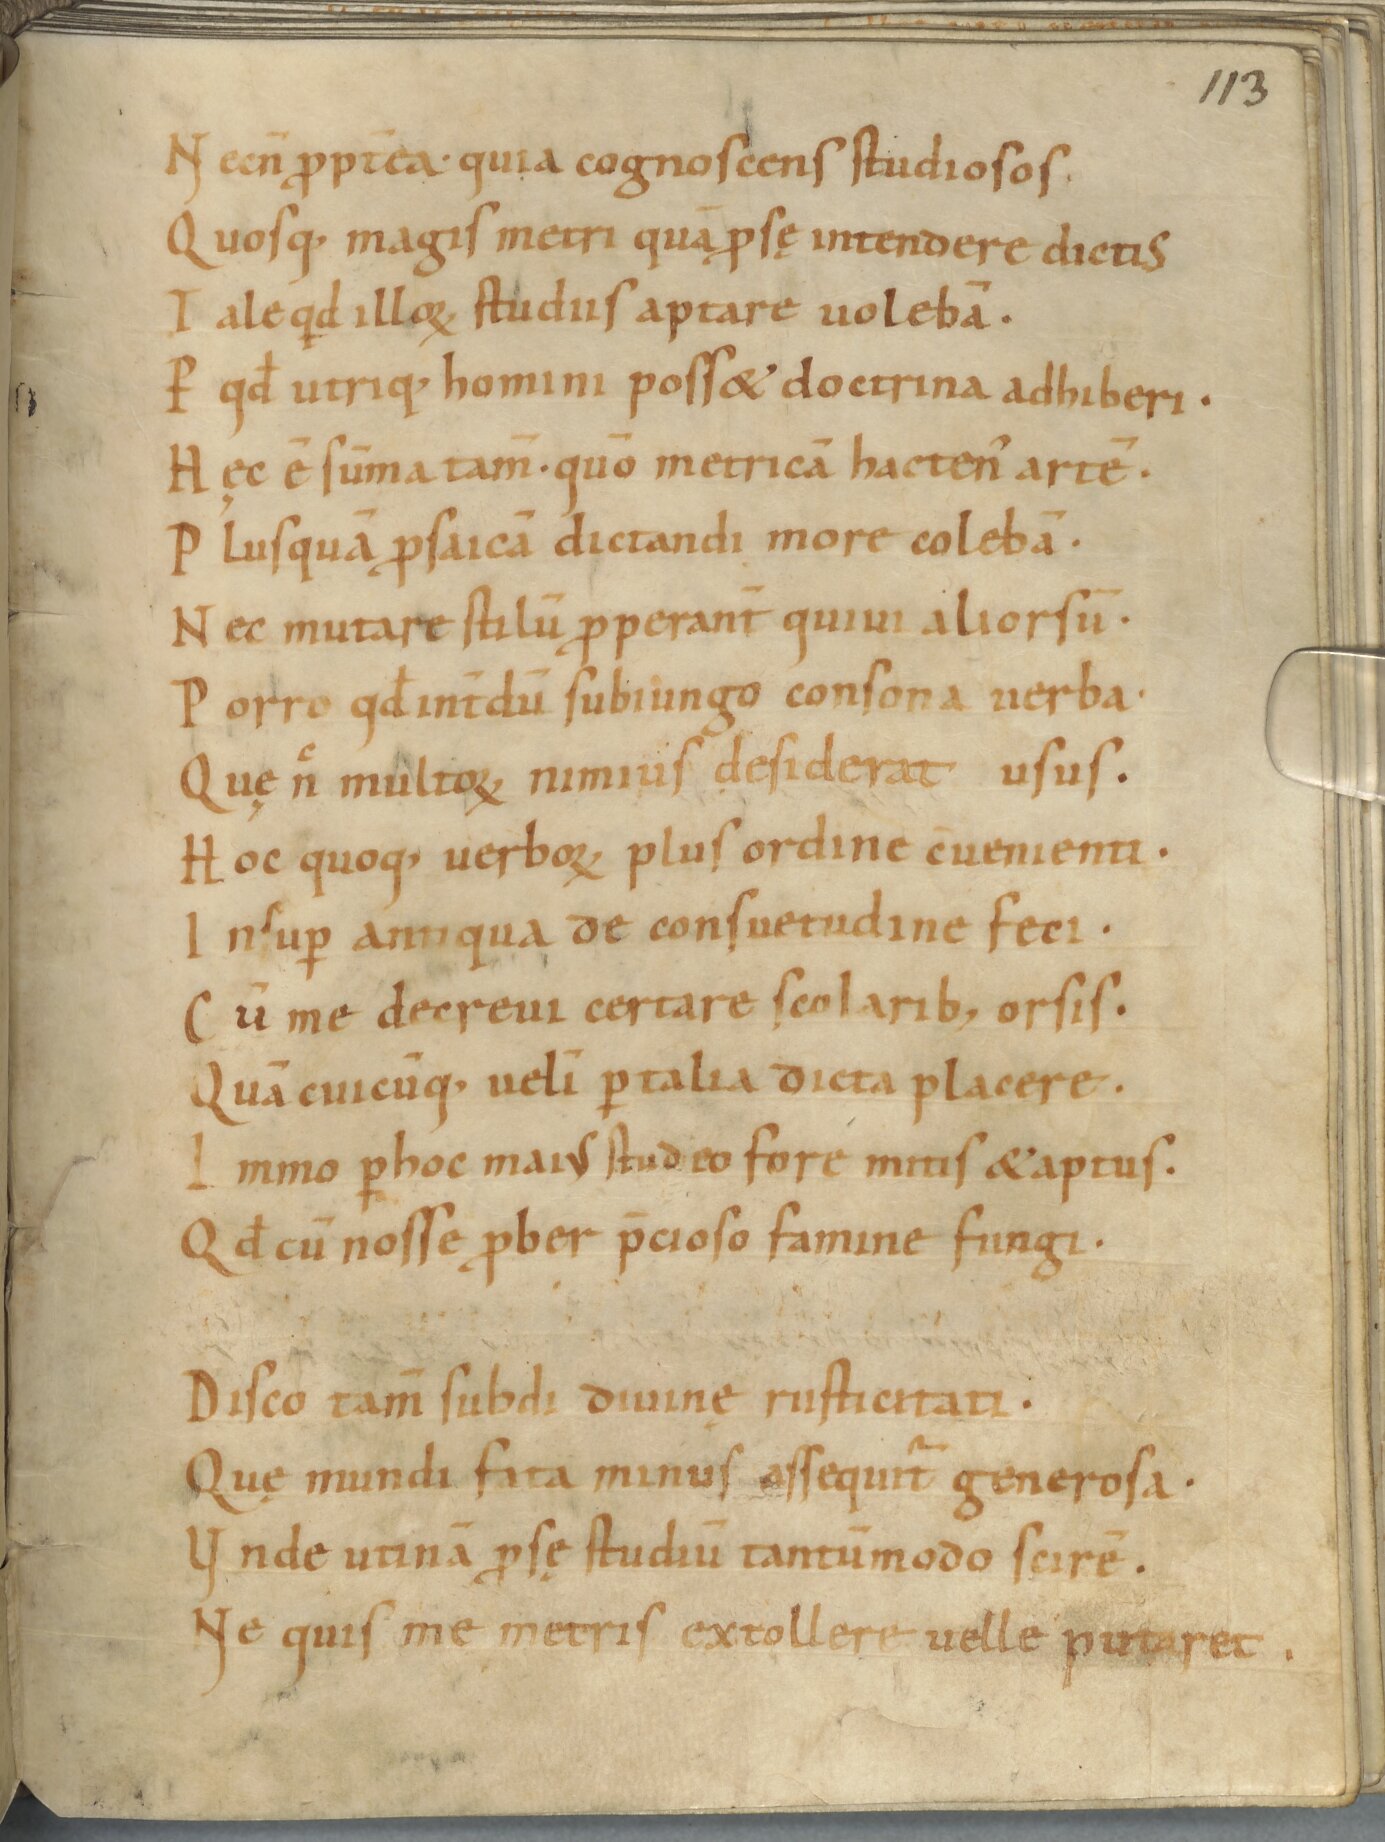 113
Necn̄ ꝓpt̄ea · quia cognoscens studiosos.
Quosq, magis metri quā ꝓsę intendere dictis
Tale qd illoꝝ studiis aptare uolebā.
P qđ utriq, homini poss& doctrina adhiberi.
Hęc ē sūma tam̄ · quō metricā hacten᾽ artē.
Plusquā ꝓsaicā dictandi more colebā.
Nec mutare stilū ꝓperant̄ quiui aliorsū.
Porro qđ int̄dū subiungo consona uerba.
Quę nc̄ multoꝝ nimius desiderat usus.
Hoc quoq, uerboꝝ plus ordine c̄uenienti.
Insuꝑ antiqua de consuetudine feci.
Cū me decreui certare scolarib; orsis.
Quā cuicūq, uelī ꝑ talia dicta placere.
Immo ꝑ hoc maius studeo fore mitis & aptus.
Qđ cū nosse ꝓber p̄cioso famine fungi.
Disco tam̄ subdi diuinę rusticitati.
Quę mundi fata minus assequit᷑ generosa.
Vnde utinā ꝓsę studiū tantūmodo scirē.
Ne quis me metris extollere uelle putaret.